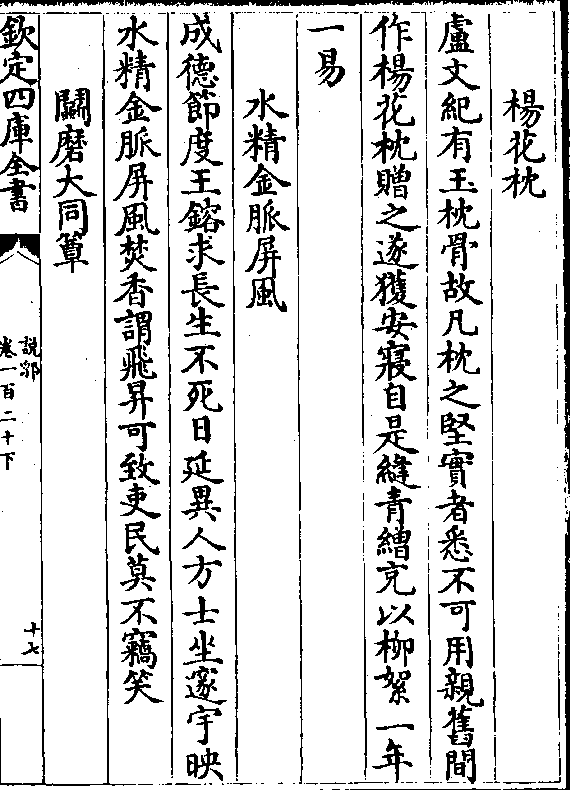 楊花枕
盧文紀有玉枕骨故凡枕之堅實者悉不可用親舊間
作楊花枕贈之遂獲安寢自是縫青繒充以柳絮一年
一易
水精金脈屏風
成德節度王鎔求長生不死日延異人方士坐邃宇映
水精金脈屏風焚香謂飛昇可致吏民莫不竊笑
鬭磨大同簟
欽定四庫全書
說郛
卷一百二十下
十七